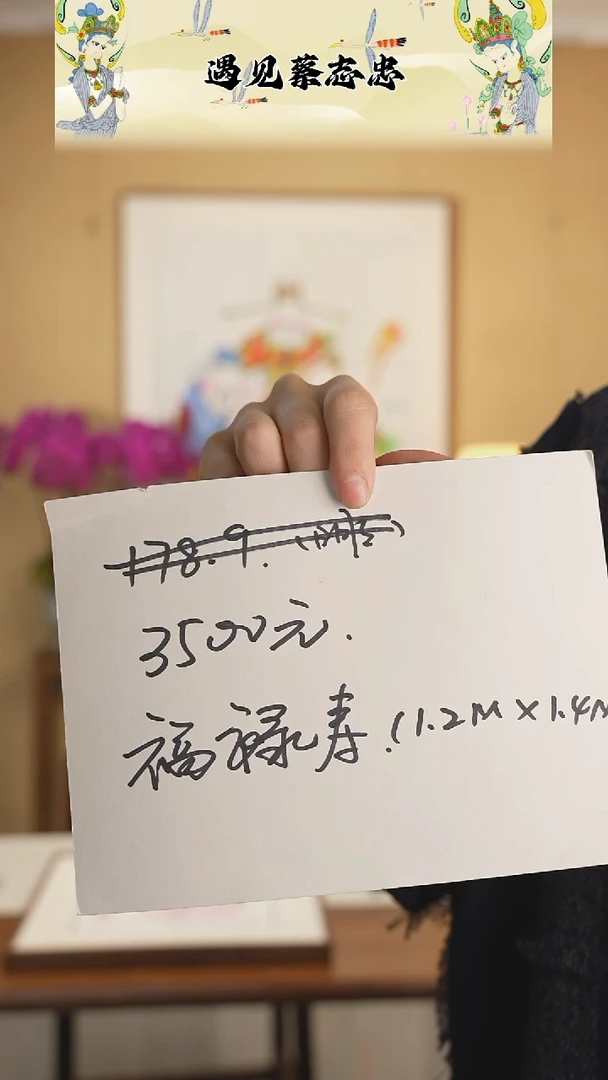 遇见蔡志忠
178.9.
3500元.
福禄寿.(1.2M×1.4M